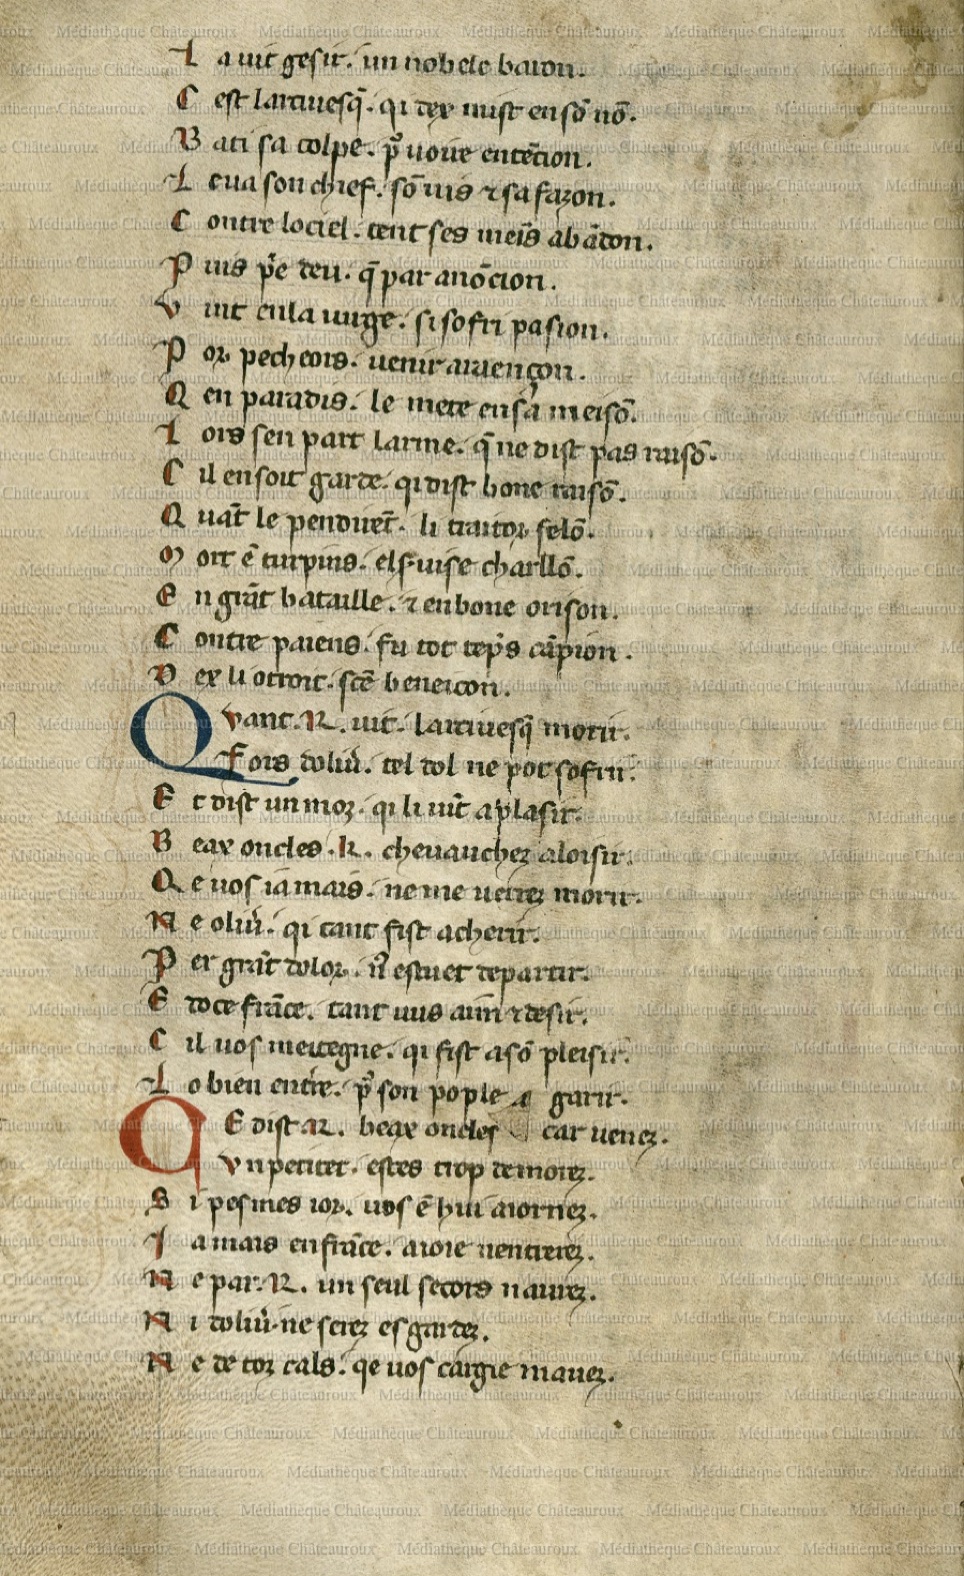 L a uit gesir . un nobele baron .
C est larciuesq̃ . qi dex mist en sõ nõ .
B ati sa colpe . p̃ uoire entẽcion .
L eua son chief . sõ uis ⁊ sa fazon .
C ontre lo ciel . tent ses meĩs abãdon .
P uis p̃e deu . q̃ par anõcion .
V int en la uirge . si sofri pasion .
P or pecheors . uenir a raençon .
Q en paradis . le mete en sa meisõ .
L ors sen part larme . q̃ ne dist pas raisõ .
C il en soit garde . qi dist bone raisõ .
Q uãt le penduẽt . li traitor felõ .
M ort ẽ turpins . el seruise charllõ .
E n grãt bataille . ⁊ en bone orison .
C ontre paiens . fu tot tẽps cãpion .
D ex li otroit . scẽ beneicon .
Q vant . R . uit . larciuesq̃ morir .
Fors doliũ . tel dol ne pot sofrir .
E t dist un moz . qi li uĩt a plasir .
B eax oncles . k . cheuauchez a loisir .
Q e uos iamais . ne me uerrez morir .
N e oliũ . qi tant fist a cherir .
P er grãt dolor . nos estuet departir .
E doce frãce . tant uus aim ⁊ desir .
C il uos meitegne . qi fist a sõ pleisir .
L o bien entrẽ . p̃ son pople a garir .
Q E dist . R . beax oncles car uenez .
Vn petitet . estes trop demorez .
S i pesmes ior . uos ẽ hui aiornez .
J amais en frãce . a ioie nentrerez .
N e par . R . un seul secors naurez .
N i doliũ . ne serez esgardez .
N e de toz cals . qe uos cargie mauez .